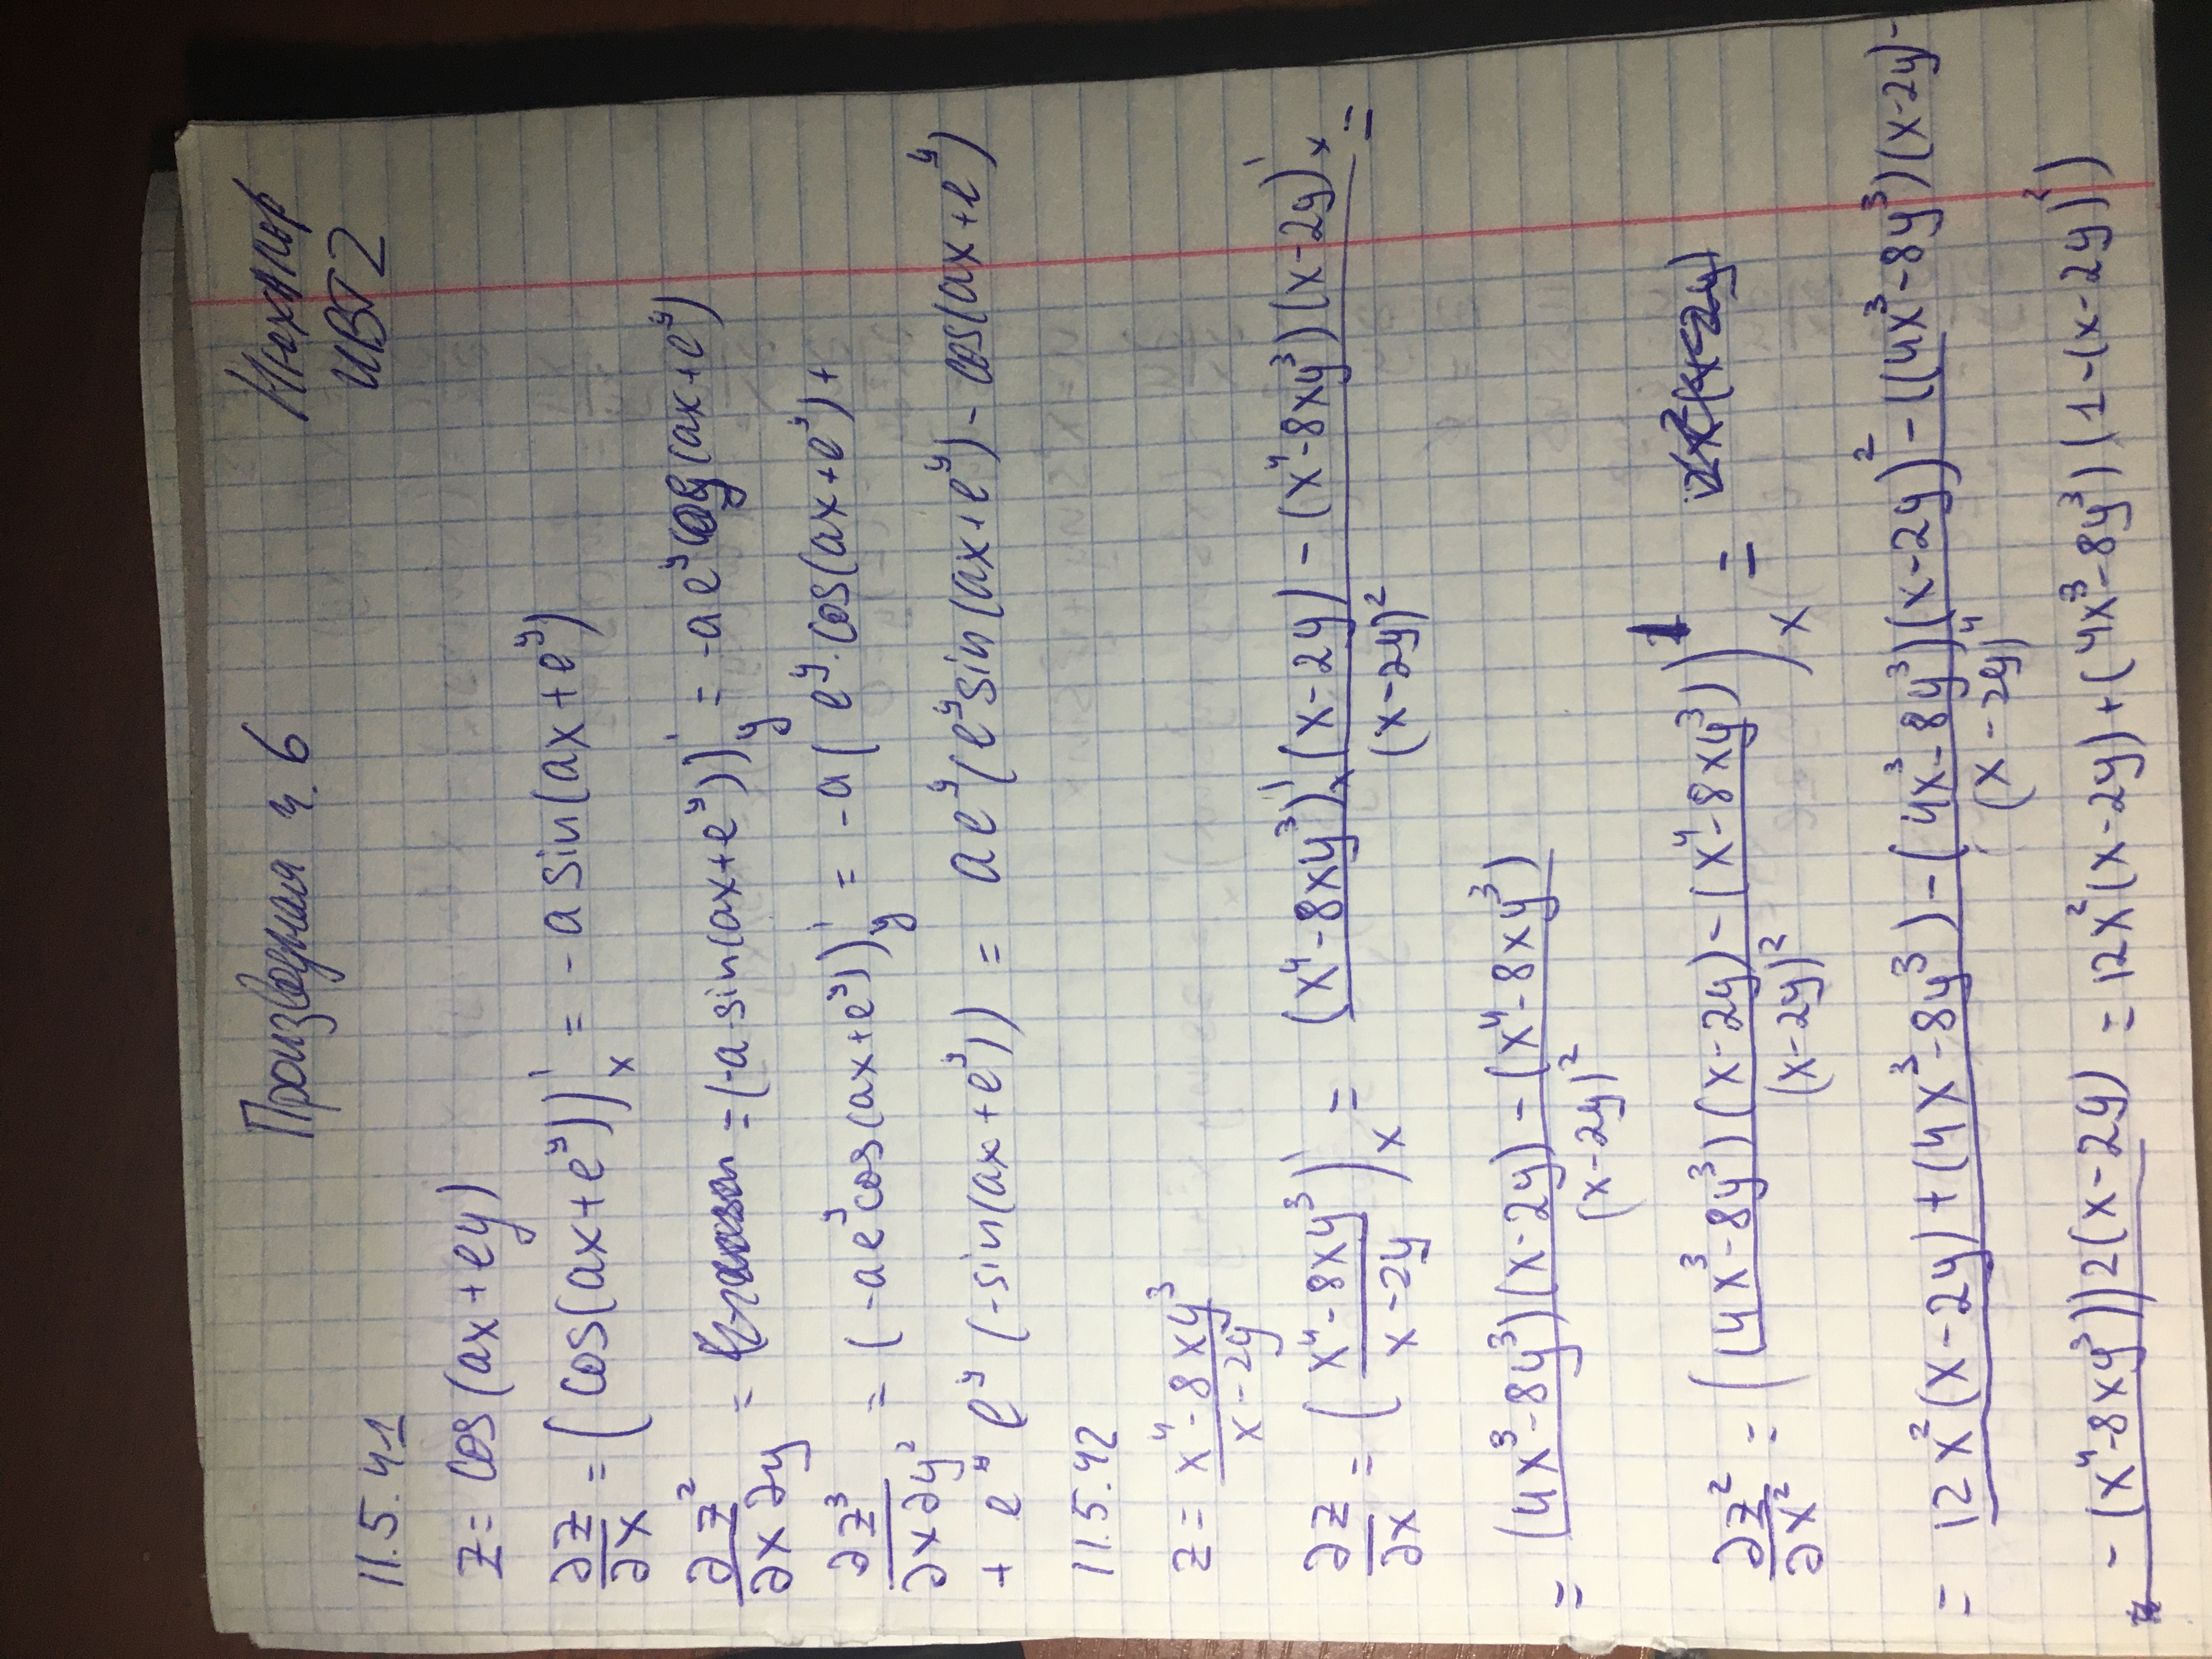 Производная ч. 6
ИВТ2
11.5.41
z = cos(ax+ey)
∂z/∂x = (cos(ax+e^y))'_x = -a sin(ax+e^y)
∂z²/∂x∂y = = (-a sin(ax+e^y))'_y = -a e^y cos(ax+e^y)
∂z³/∂x∂y² = (-ae^y cos(ax+e^y))'_y = -a( e^y · cos(ax+e^y) +
+ e^y e^y (-sin(ax+e^y)) = ae^y(e^y sin(ax+e^y) - cos(ax+e^y)
11.5.42
z = (x⁴-8xy³)/(x-2y)
∂z/∂x = ((x⁴-8xy³)/(x-2y))'_x = ((x⁴-8xy³)'_x (x-2y) - (x⁴-8xy³)(x-2y)'_x)/(x-2y)² =
= ((4x³-8y³)(x-2y) - (x⁴-8xy³))/(x-2y)²
∂z²/∂x² = (((4x³-8y³)(x-2y) - (x⁴-8xy³))/(x-2y)²)'_x = 12x²(x-2y)
= 12x²(x-2y)+(4x³-8y³)-(4x³-8y³)(x-2y)²-((4x³-8y³)(x-2y)- / (x-2y)⁴
-(x⁴-8xy³))2(x-2y) = 12x²(x-2y)+(4x³-8y³)(1-(x-2y)²)